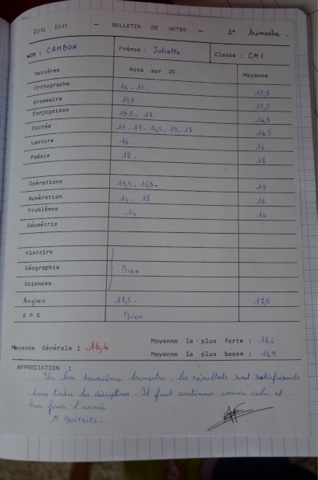 2010 - 2011 - BULLETIN DE NOTES - 2e trimestre.
NOM : CAMBON Prénom : Juliette Classe : CM1
Matières Note sur 20 Moyenne
Orthographe 16 - 15 15,5
Grammaire 15,5 15,5
Conjugaison 15,5 - 17 16,5
Dictée 16,5
Lecture 16 16
Poésie 18 18
Opérations 19
Numération 14 - 18 16
Problèmes 14 14
Géométrie
Histoire
Géographie Bien
Sciences
Anglais 17,5 17,5
E P S Bien
Moyenne Générale : 16,4 Moyenne la plus forte : 18,4
Moyenne la plus basse :
APPRECIATION :
Un bon deuxième trimestre, les résultats sont satisfaisants
dans toutes les disciplines. Il faut continuer comme cela et
bien finir l'année.